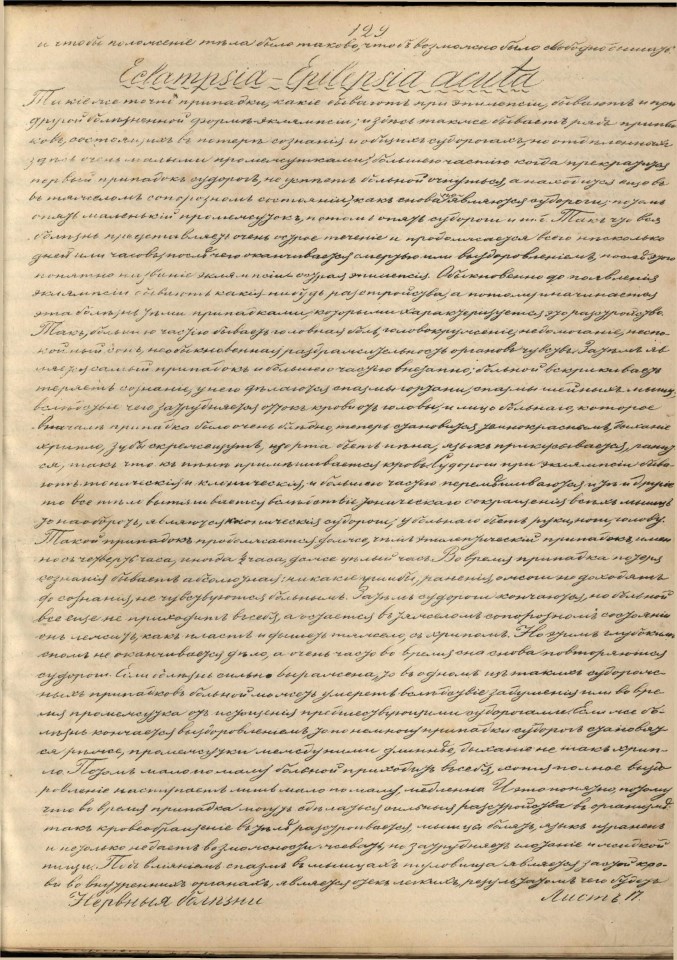 129
и чтобы положение тѣла было таково, чтобъ возможно было свободно дышать.
Eclampsia – Epilepsia acuta
Такіе же точно припадки, какіе бываютъ при эпилепсіи, бываютъ и при
другой болѣзненной формѣ эклямпсіи; и здѣсь также бываетъ рядъ припад-
ковъ, состоящихъ въ потерѣ сознанія и общихъ судорогахъ, но отдѣленныхъ
здѣсь очень малыми промежутками; большею частію когда прекратится
первый припадокъ судорогъ, не успѣетъ больной очнуться, а находится еще въ
въ тяжеломъ сопорозномъ состояніи, какъ снова являются судороги; потомъ
опять маленькій промежутокъ, потомъ опять судороги и т.д. Такъ что вся
болѣзнь представляетъ очень острое теченіе и продолжается всего нѣсколько
дней или часовъ, послѣ чего оканчивается смертью или выздоровленіемъ, поэтому
понятно названіе эклямпсіи острая эпилепсія. Обыкновенно до появленія
эклямпсіи бываютъ какія нибудь разстройства, а потому и начинается
эта болѣзнь тѣми припадками, которыми характеризуется это разстройство.
Такъ, большею частію бываетъ головная боль, головокруженіе, недомоганіе, неспо-
койный сонъ, необыкновенная раздражительность органовъ чувствъ. Затѣмъ яв-
ляется самый припадокъ и большею частію внезапно; больной вскрикиваетъ
теряетъ сознаніе, у него дѣлаются спазмы гортани, спазмы шейныхъ мышцъ,
вслѣдствіе чего затрудняется оттокъ крови отъ головы, и лицо больнаго, которое
вначалѣ припадка было очень блѣдно, теперь становится темнокраснымъ, дыханіе
хрипло, зубы скрежещутъ, изо рта бьетъ пѣна, языкъ прикусывается, ранит-
ся, такъ что къ пѣнѣ примѣшивается кровь. Судороги при эклямпсіи быва-
ютъ тоническія и клоническія, и большею частію перемѣшиваются и тѣ и другіе
то все тѣло вытягивается вслѣдствіе тоническаго сокращенія всѣхъ мышцъ
то наоборотъ, являются клоническія судороги; у больнаго бьетъ руки, ноги, голову.
Такой припадокъ продолжается дольше, чѣмъ эпилептическій припадокъ, имен-
но съ четверть часа, иногда ½ часа, даже цѣлый часъ. Во время припадка потеря
сознанія бываетъ абсолютная: никакіе ушибы, раненія, ожоги не доходятъ
до сознанія, не чувствуются больнымъ. Затѣмъ судороги кончаются, но больной
все еще не приходитъ въ себя, а остается въ тяжеломъ сопорозномъ состояніи
онъ лежитъ, какъ пластъ и дышетъ тяжело, съ хрипомъ. Но этимъ глубокимъ
сномъ не оканчивается дѣло, а очень часто во время сна снова повторяются
судороги. Если болѣзнь сильно выражена, то въ одномъ изъ такихъ судорож-
ныхъ припадковъ больной можетъ умереть вслѣдствіе задушенія или во вре-
мя промежутка отъ истощенія предшествующими судорогами. Если же бо-
лѣзнь кончается выздоровленіемъ, то по немногу припадки судорогъ становят-
ся рѣже, промежутки между ними длиннѣе, дыханіе не такъ хрип-
ло. Потомъ мало по малу больной приходитъ въ себя, хотя полное выздо-
ровленіе наступаетъ лишь мало по малу, медленно. И это понятно, потому
что во время припадка могутъ сдѣлаться сильныя разстройства въ организмѣ
такъ кровообращеніе въ тѣлѣ разстроивается, мышцы болятъ, языкъ израненъ
и не только не даетъ возможности жевать, но затрудняетъ глотаніе и жидкой
пищи. Подъ вліяніемъ спазмъ въ мышцахъ туловища является застой кро-
ви во внутреннихъ органахъ, является отекъ легкихъ, результатомъ чего будетъ
Нервныя болѣзни
Листъ 17.